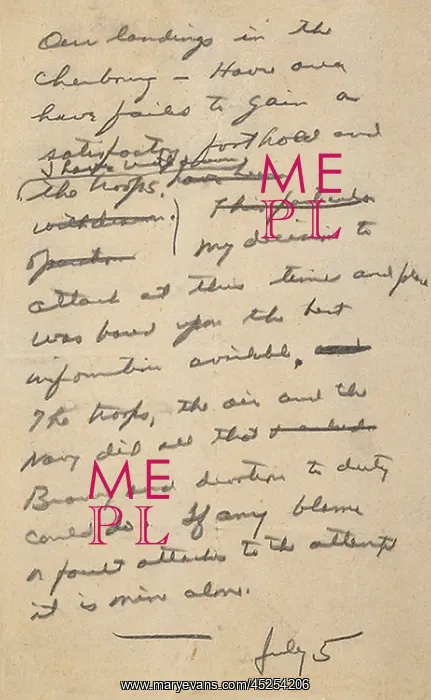 Our landings in the
Cherbourg - Havre area
have failed to gain a
satisfactory foothold and
I have withdrawn
the troops. have been
withdrawn. This particular
operation My decision to
attack at this time and place
was based upon the best
information available. and
The troops, the air and the
Navy did all that
Bravery and devotion to duty
could do. If any blame
or fault attaches to the attempt
it is mine alone.
July 5
ME
PL
ME
PL
www.maryevans.com/45254206